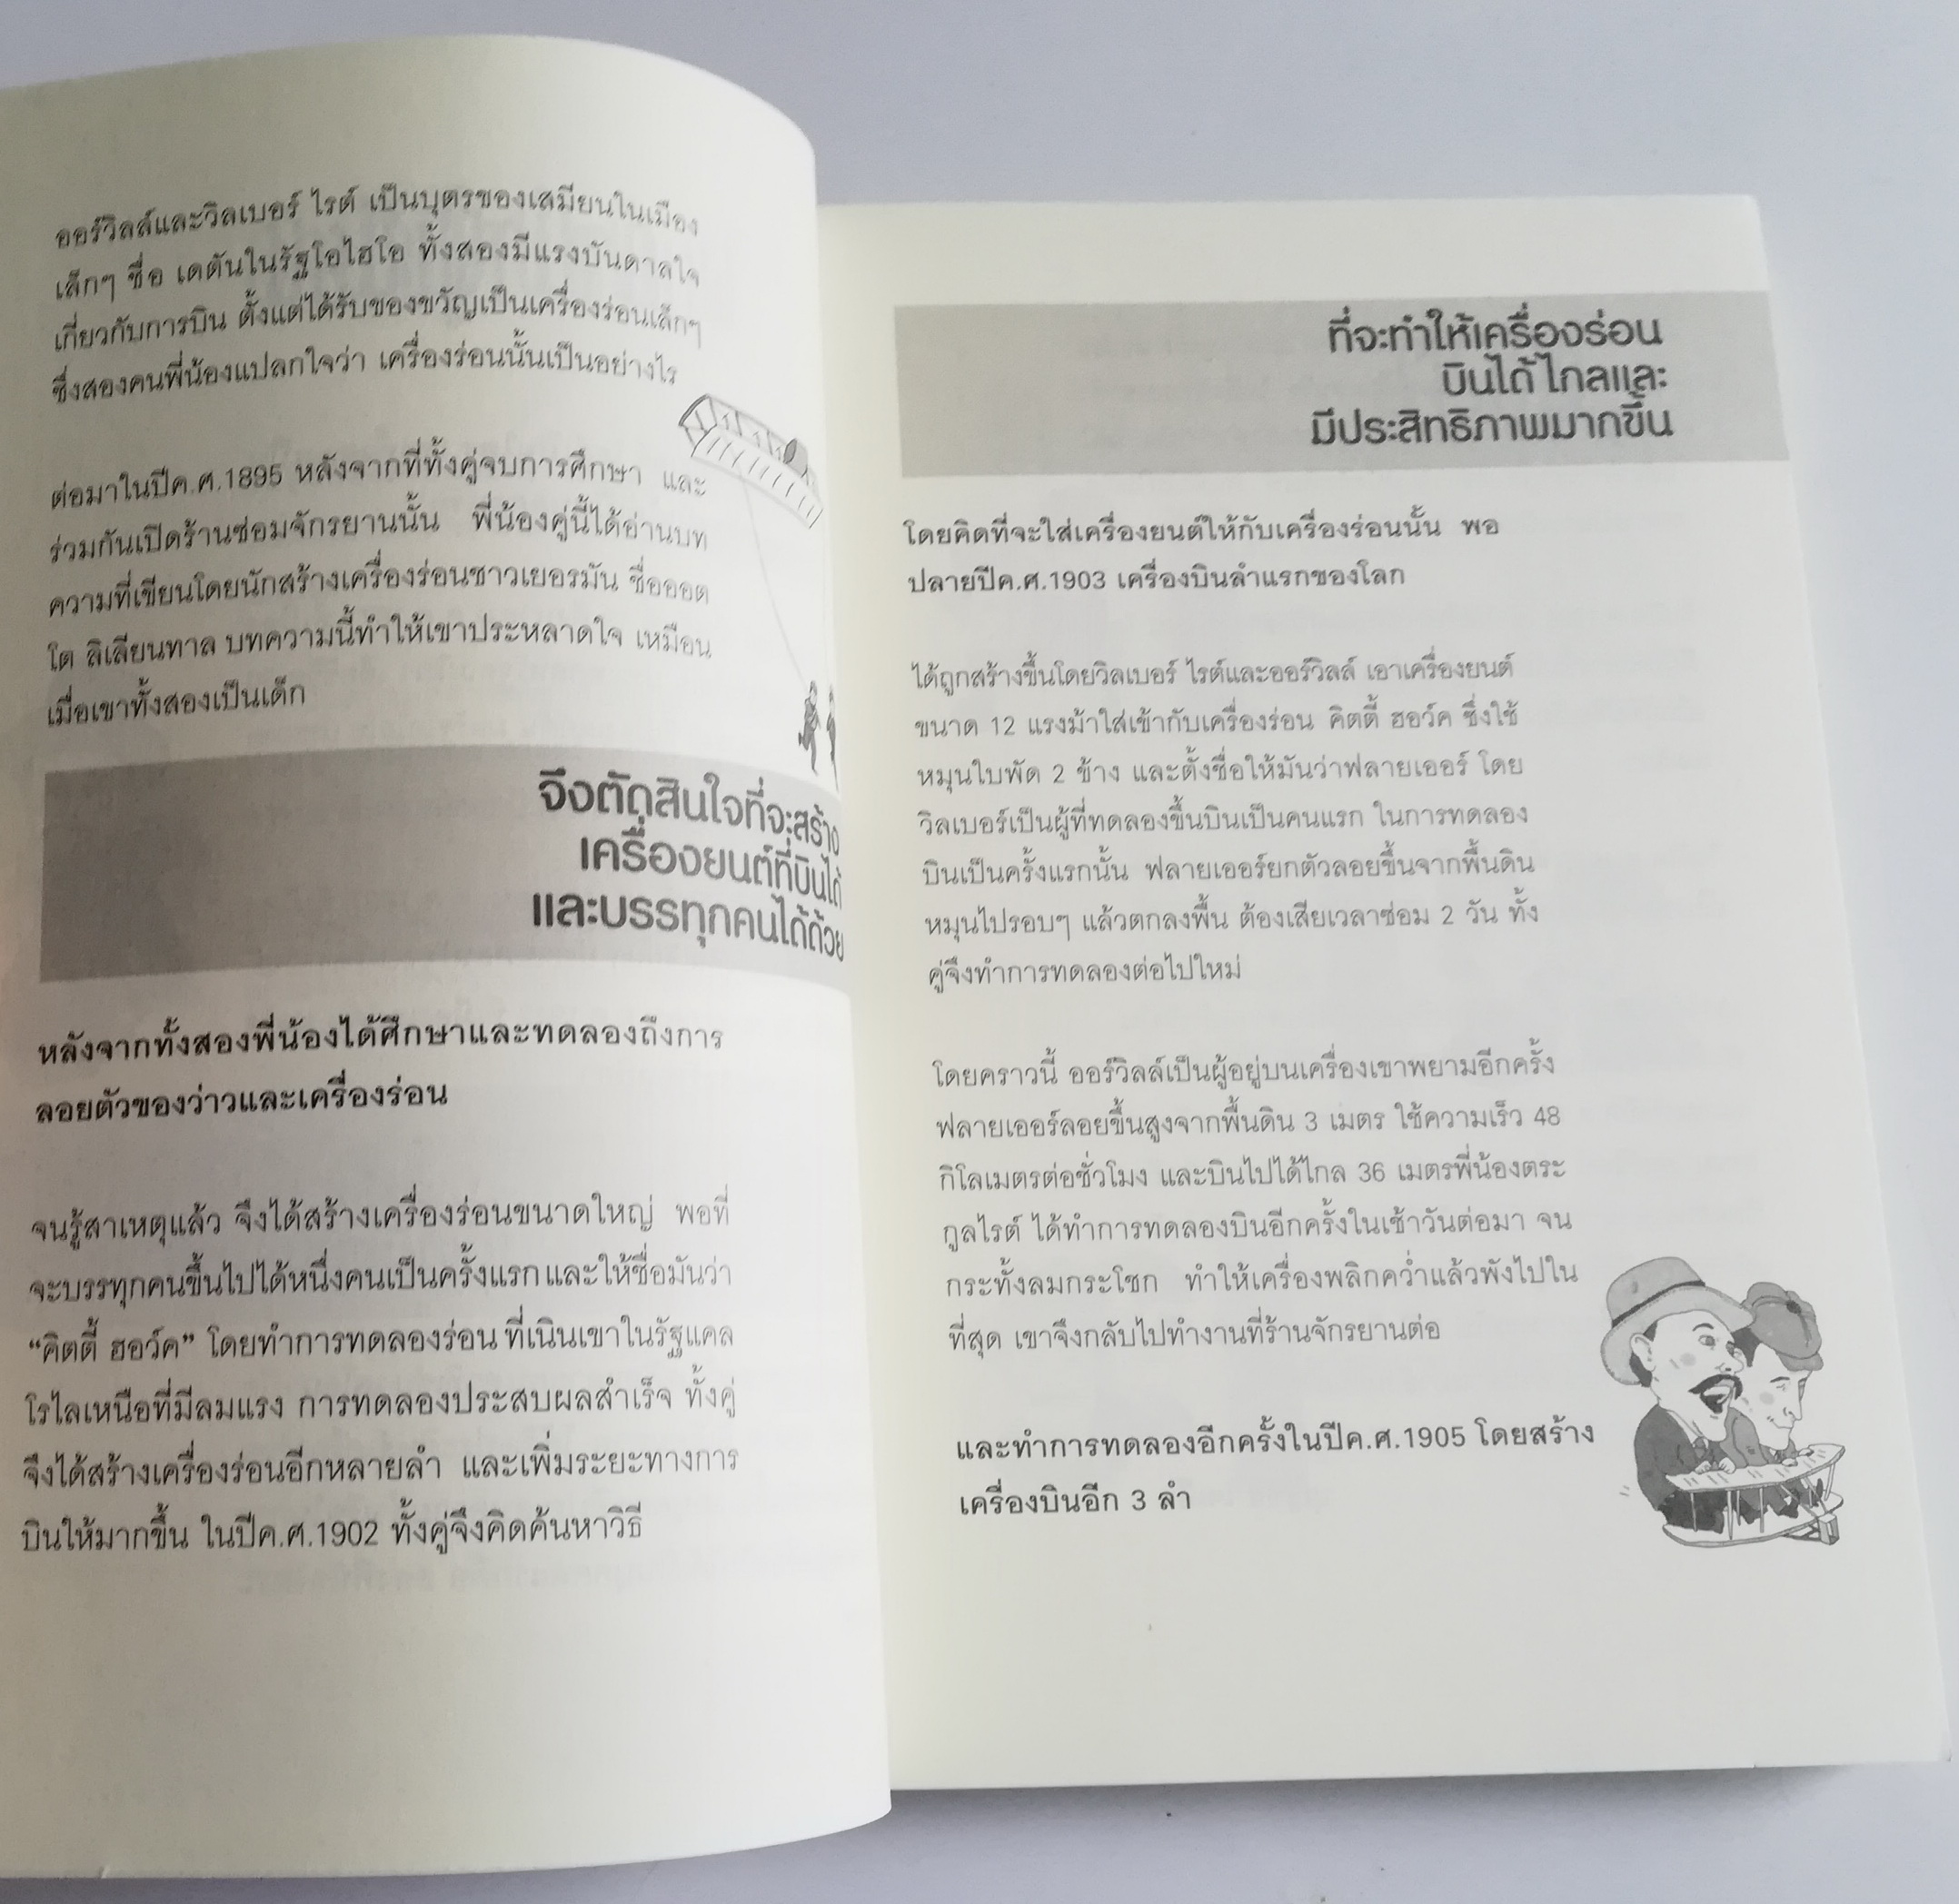 ออร์วิลล์และวิลเบอร์ ไรต์ เป็นบุตรของเสมียนในเมือง
เล็กๆ ชื่อ เดตันในรัฐโอไฮโอ ทั้งสองมีแรงบันดาลใจ
เกี่ยวกับการบิน ตั้งแต่ได้รับของขวัญเป็นเครื่องร่อนเล็กๆ
ซึ่งสองคนพี่น้องแปลกใจว่า เครื่องร่อนนั้นเป็นอย่างไร
ต่อมาในปีค.ศ.1895 หลังจากที่ทั้งคู่จบการศึกษา และ
ร่วมกันเปิดร้านซ่อมจักรยานนั้น พี่น้องคู่นี้ได้อ่านบท
ความที่เขียนโดยนักสร้างเครื่องร่อนชาวเยอรมัน ชื่อออต
โต ลิเลียนทาล บทความนี้ทำให้เขาประหลาดใจ เหมือน
เมื่อเขาทั้งสองเป็นเด็ก
จึงตัดสินใจที่จะสร้าง
เครื่องยนต์ที่บินได้
และบรรทุกคนได้ด้วย
หลังจากทั้งสองพี่น้องได้ศึกษาและทดลองถึงการ
ลอยตัวของว่าวและเครื่องร่อน
จนรู้สาเหตุแล้ว จึงได้สร้างเครื่องร่อนขนาดใหญ่ พอที่
จะบรรทุกคนขึ้นไปได้หนึ่งคนเป็นครั้งแรก และให้ชื่อมันว่า
“คิตตี้ ฮอว์ค” โดยทำการทดลองร่อน ที่เนินเขาในรัฐแคล
โรไลเหนือที่มีลมแรง การทดลองประสบผลสำเร็จ ทั้งคู่
จึงได้สร้างเครื่องร่อนอีกหลายลำ และเพิ่มระยะทางการ
บินให้มากขึ้น ในปีค.ศ.1902 ทั้งคู่จึงคิดค้นหาวิธี
ที่จะทำให้เครื่องร่อน
บินได้ไกลและ
มีประสิทธิภาพมากขึ้น
โดยคิดที่จะใส่เครื่องยนต์ให้กับเครื่องร่อนนั้น พอ
ปลายปีค.ศ.1903 เครื่องบินลำแรกของโลก
ได้ถูกสร้างขึ้นโดยวิลเบอร์ ไรต์และออร์วิลล์ เอาเครื่องยนต์
ขนาด 12 แรงม้าใส่เข้ากับเครื่องร่อน คิตตี้ ฮอว์ค ซึ่งใช้
หมุนใบพัด 2 ข้าง และตั้งชื่อให้มันว่าฟลายเออร์ โดย
วิลเบอร์เป็นผู้ที่ทดลองขึ้นบินเป็นคนแรก ในการทดลอง
บินเป็นครั้งแรกนั้น ฟลายเออร์ยกตัวลอยขึ้นจากพื้นดิน
หมุนไปรอบๆ แล้วตกลงพื้น ต้องเสียเวลาซ่อม 2 วัน ทั้ง
คู่จึงทำการทดลองต่อไปใหม่
โดยคราวนี้ ออร์วิลล์เป็นผู้อยู่บนเครื่องเขาพยามอีกครั้ง
ฟลายเออร์ลอยขึ้นสูงจากพื้นดิน 3 เมตร ใช้ความเร็ว 48
กิโลเมตรต่อชั่วโมง และบินไปได้ไกล 36 เมตรพี่น้องตระ
กูลไรต์ ได้ทำการทดลองบินอีกครั้งในเช้าวันต่อมา จน
กระทั้งลมกระโชก ทำให้เครื่องพลิกคว่ำแล้วพังไปใน
ที่สุด เขาจึงกลับไปทำงานที่ร้านจักรยานต่อ
และทำการทดลองอีกครั้งในปีค.ศ.1905 โดยสร้าง
เครื่องบินอีก 3 ลำ